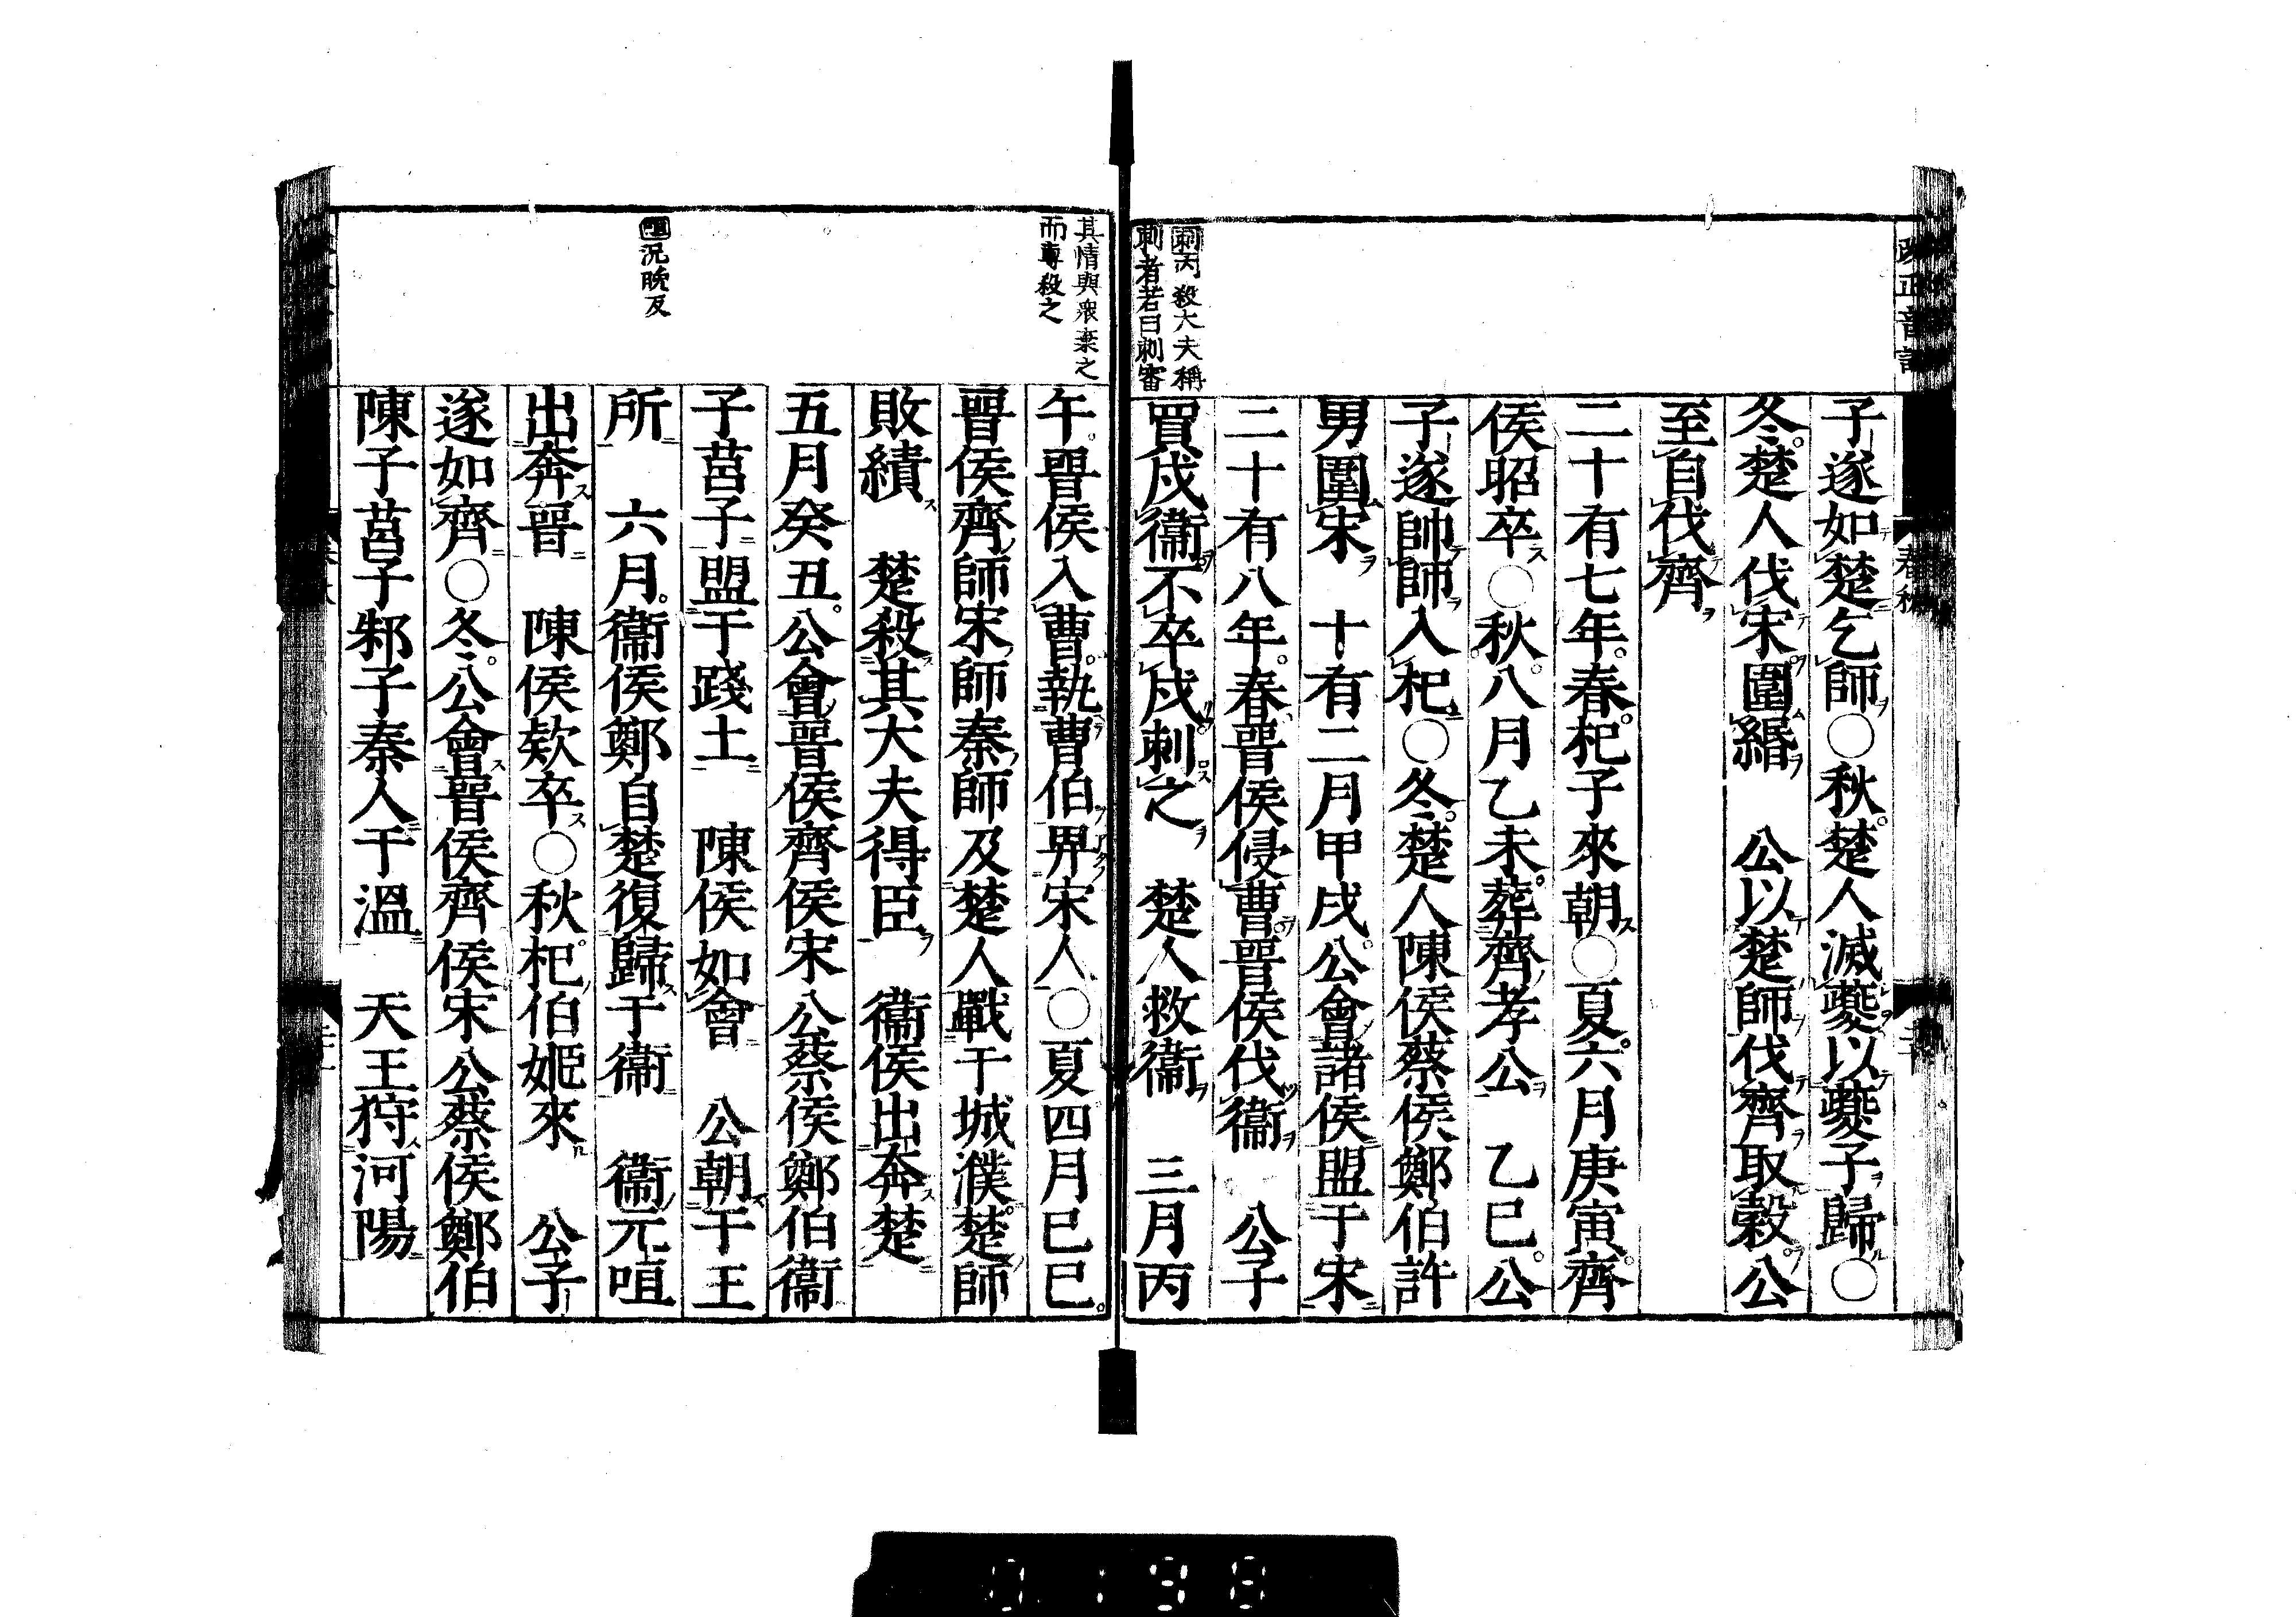 子遂如楚乞師○秋楚人滅夔以夔子歸○
冬楚人伐宋圍緡　公以楚師伐齊取穀公
至自伐齊
二十有七年春杞子來朝○夏六月庚寅齊
侯昭卒○秋八月乙未葬齊孝公　乙巳公
子遂帥師入杞○冬楚人陳侯蔡侯鄭伯許
男圍宋　十有二月甲戌公會諸侯盟于宋
二十有八年春晉侯侵曹晉侯伐衞　公子
買戍衞不卒戍刺之　楚人救衞　三月丙
刺丙殺大夫稱
刺者若曰刺審
其情與衆棄之
而專殺之
午晉侯入曹執曹伯畀宋人○夏四月己巳
晉侯齊師宋師秦師及楚人戰于城濮楚師
敗績　楚殺其大夫得臣　衞侯出奔楚
五月癸丑公會晉侯齊侯宋公蔡侯鄭伯衞
子莒子盟于踐土　陳侯如會　公朝于王
所　六月衞侯鄭自楚復歸于衞　衞元咺
咺況晚反
出奔晉　陳侯欵卒○秋杞伯姬來　公子
遂如齊○冬公會晉侯齊侯宋公蔡侯鄭伯
陳子莒子邾子秦人于溫　天王狩河陽
0198